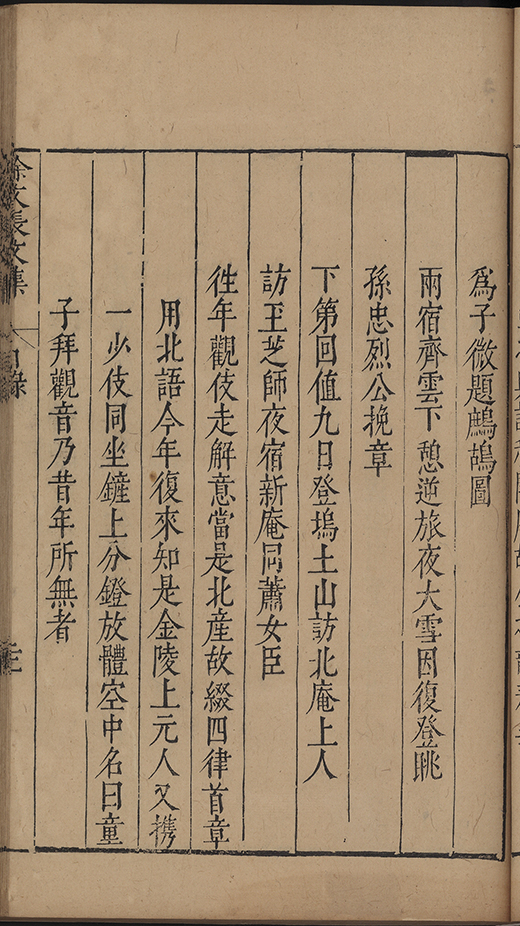 爲子微題鷓鴣圖
兩宿齊雲下憇逆旅夜大雪因復登眺
孫忠烈公挽章
下第回值九日登塢土山訪北庵上人
訪王芝師夜宿新庵同蕭女臣
徃年觀伎走解意當是北產故綴四律首章
用北語今年復來知是金陵上元人又携
一少伎同坐鏟上分鐙放體空中名曰童
子拜觀音乃昔年所無者
徐文長文集
目錄